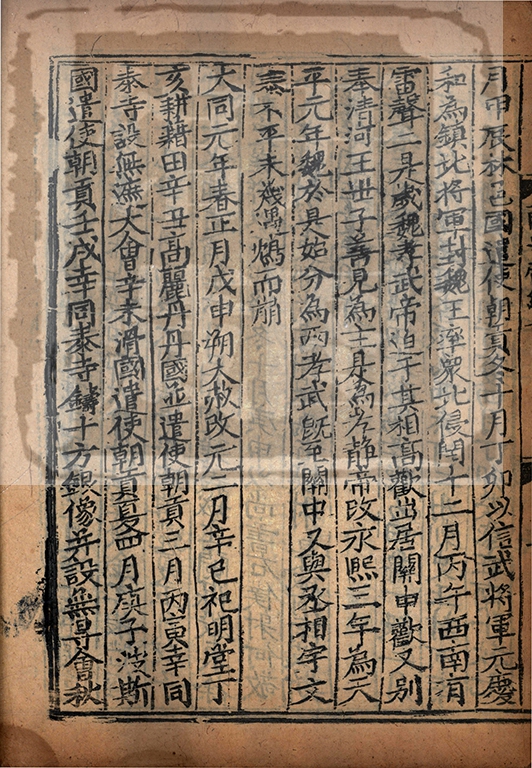 月甲辰林邑國遣使朝貢冬十月丁卯以信武將軍元慶
和為鎮北將軍封魏王率衆北侵閏十二月丙午西南有
雷聲二是歲魏孝武帝迫于其相高歡出居關中歡又別
奉清河王世子善見為主是為孝静帝改永熙三年為天
平元年魏於是始分為兩孝武旣至關中又與丞相宇文
泰不平未幾遇鴆而崩
大同元年春正月戊申朔大赦改元二月辛巳祀明堂丁
亥耕藉田辛丑高麗丹丹國並遣使朝貢三月丙寅幸同
泰寺設無㵼大會辛未滑國遣使朝貢夏四月庚子波斯
國遣使朝貢壬戌幸同泰寺鑄十方銀像并設無㝵會秋